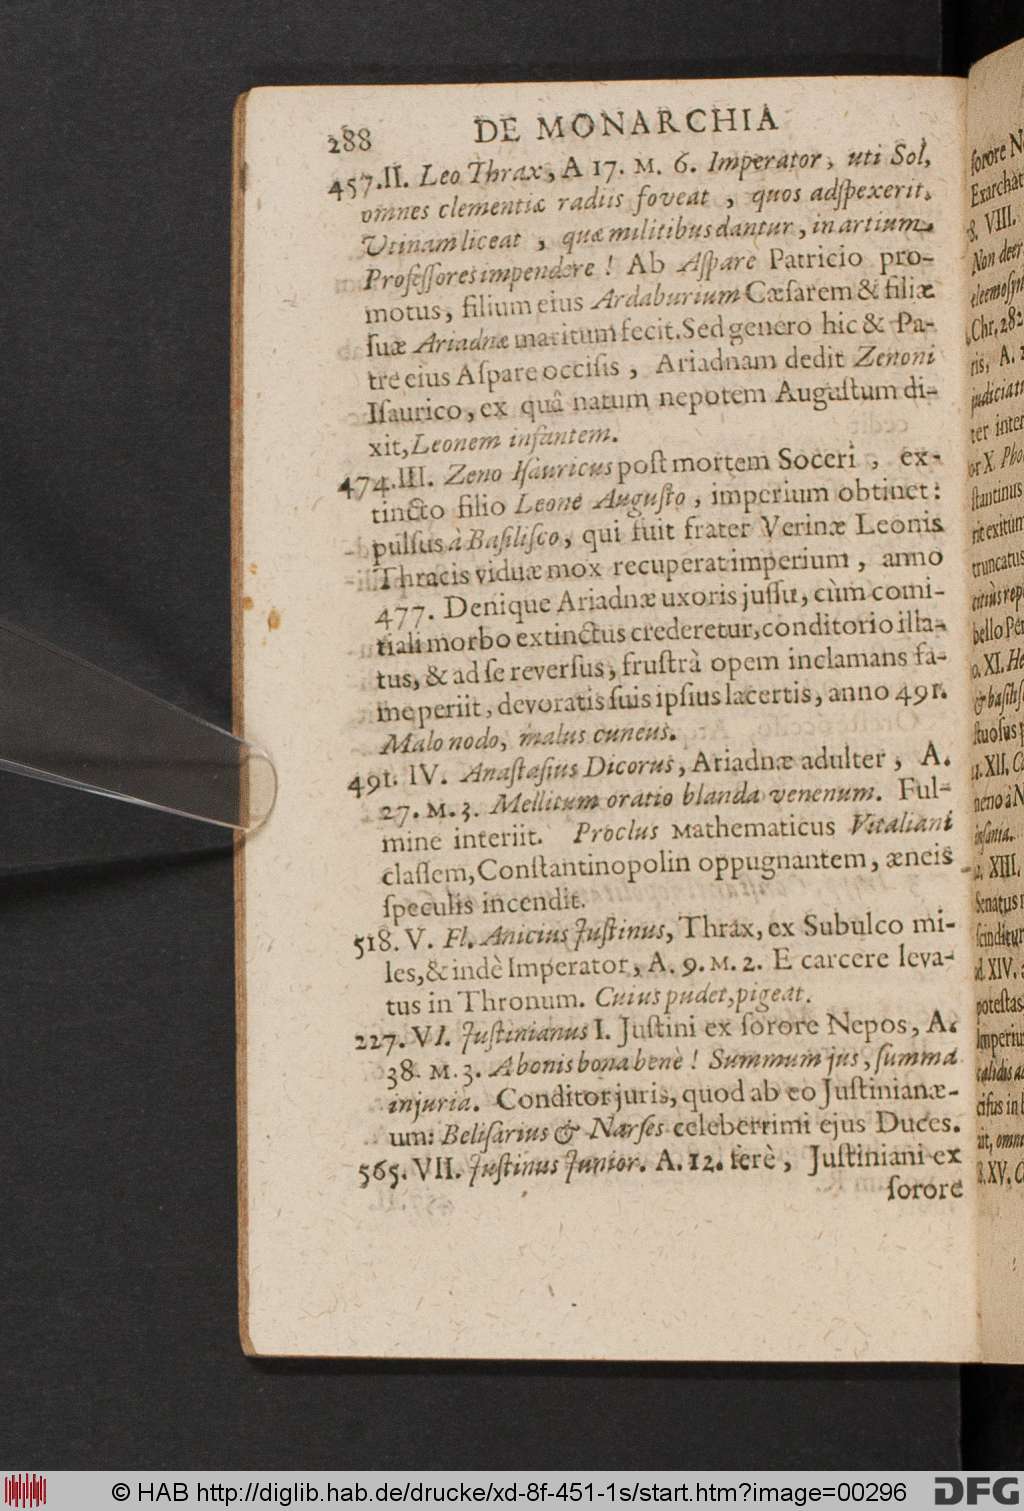 288 DE MONARCHIA
457. II. Leo Thrax, A 17. M. 6. Imperator, uti Sol,
omnes clementiæ radiis foveat, quos adſpexerit.
Utinam liceat, quæ militibus dantur, in artium
Profeſſores impendere! Ab Aſpare Patricio pro-
motus, filium eius Ardaburium Cæſarem & filiæ
ſuæ Ariadnæ maritum fecit. Sed genero hic & Pa-
tre eius Aſpare occiſis, Ariadnam dedit Zenoni
Iſaurico, ex quâ natum nepotem Auguſtum di-
xit, Leonem infantem.
474. III. Zeno Iſauricus poſt mortem Soceri, ex-
tincto filio Leone Auguſto, imperium obtinet:
pulſus à Baſiliſco, qui fuit frater Verinæ Leonis
Thracis viduæ mox recuperat imperium, anno
477. Denique Ariadnæ uxoris juſſu, cùm comi-
tiali morbo extinctus crederetur, conditorio illa-
tus, & ad ſe reverſus, fruſtrà opem inclamans fa-
me periit, devoratis ſuis ipſius lacertis, anno 491.
Malo nodo, malus cuneus.
491. IV. Anaſtaſius Dicorus, Ariadnæ adulter, A.
27. M. 3. Mellitum oratio blanda venenum. Ful-
mine interiit. Proclus Mathematicus Vitaliani
claſſem, Conſtantinopolin oppugnantem, æneis
ſpeculis incendit.
518. V. Fl. Anicius Juſtinus, Thrax, ex Subulco mi-
les, & indè Imperator, A. 9. M. 2. E carcere leva-
tus in Thronum. Cuius pudet, pigeat.
227. VI. Juſtinianus I. Juſtini ex ſorore Nepos, A.
38. M. 3. A bonis bona benè! Summum jus, ſumma
injuria. Conditor juris, quod ab eo Juſtinianæ-
um: Beliſarius & Narſes celeberrimi ejus Duces.
565. VII. Juſtinus Junior. A. 12. ferè, Juſtiniani ex
ſorore
ſorore
Exarchat
8. VIII.
Non deer
eleemoſyn
Chr. 282
ris, A.
judiciati
ter inter
or X. Pho
ſtantinus
rit exitum
truncatus
citiùs rep
bello Per
XI. He
& baſiliſ
ſtuoſus
XII. C
neno à
inſania.
XIII.
Senatus
ſcinditur
XIV.
poteſtas
Imperiu
calidis a
ciſus in
ut, omn
8. XV. C
© HAB http://diglib.hab.de/drucke/xd-8f-451-1s/start.htm?image=00296
DFG